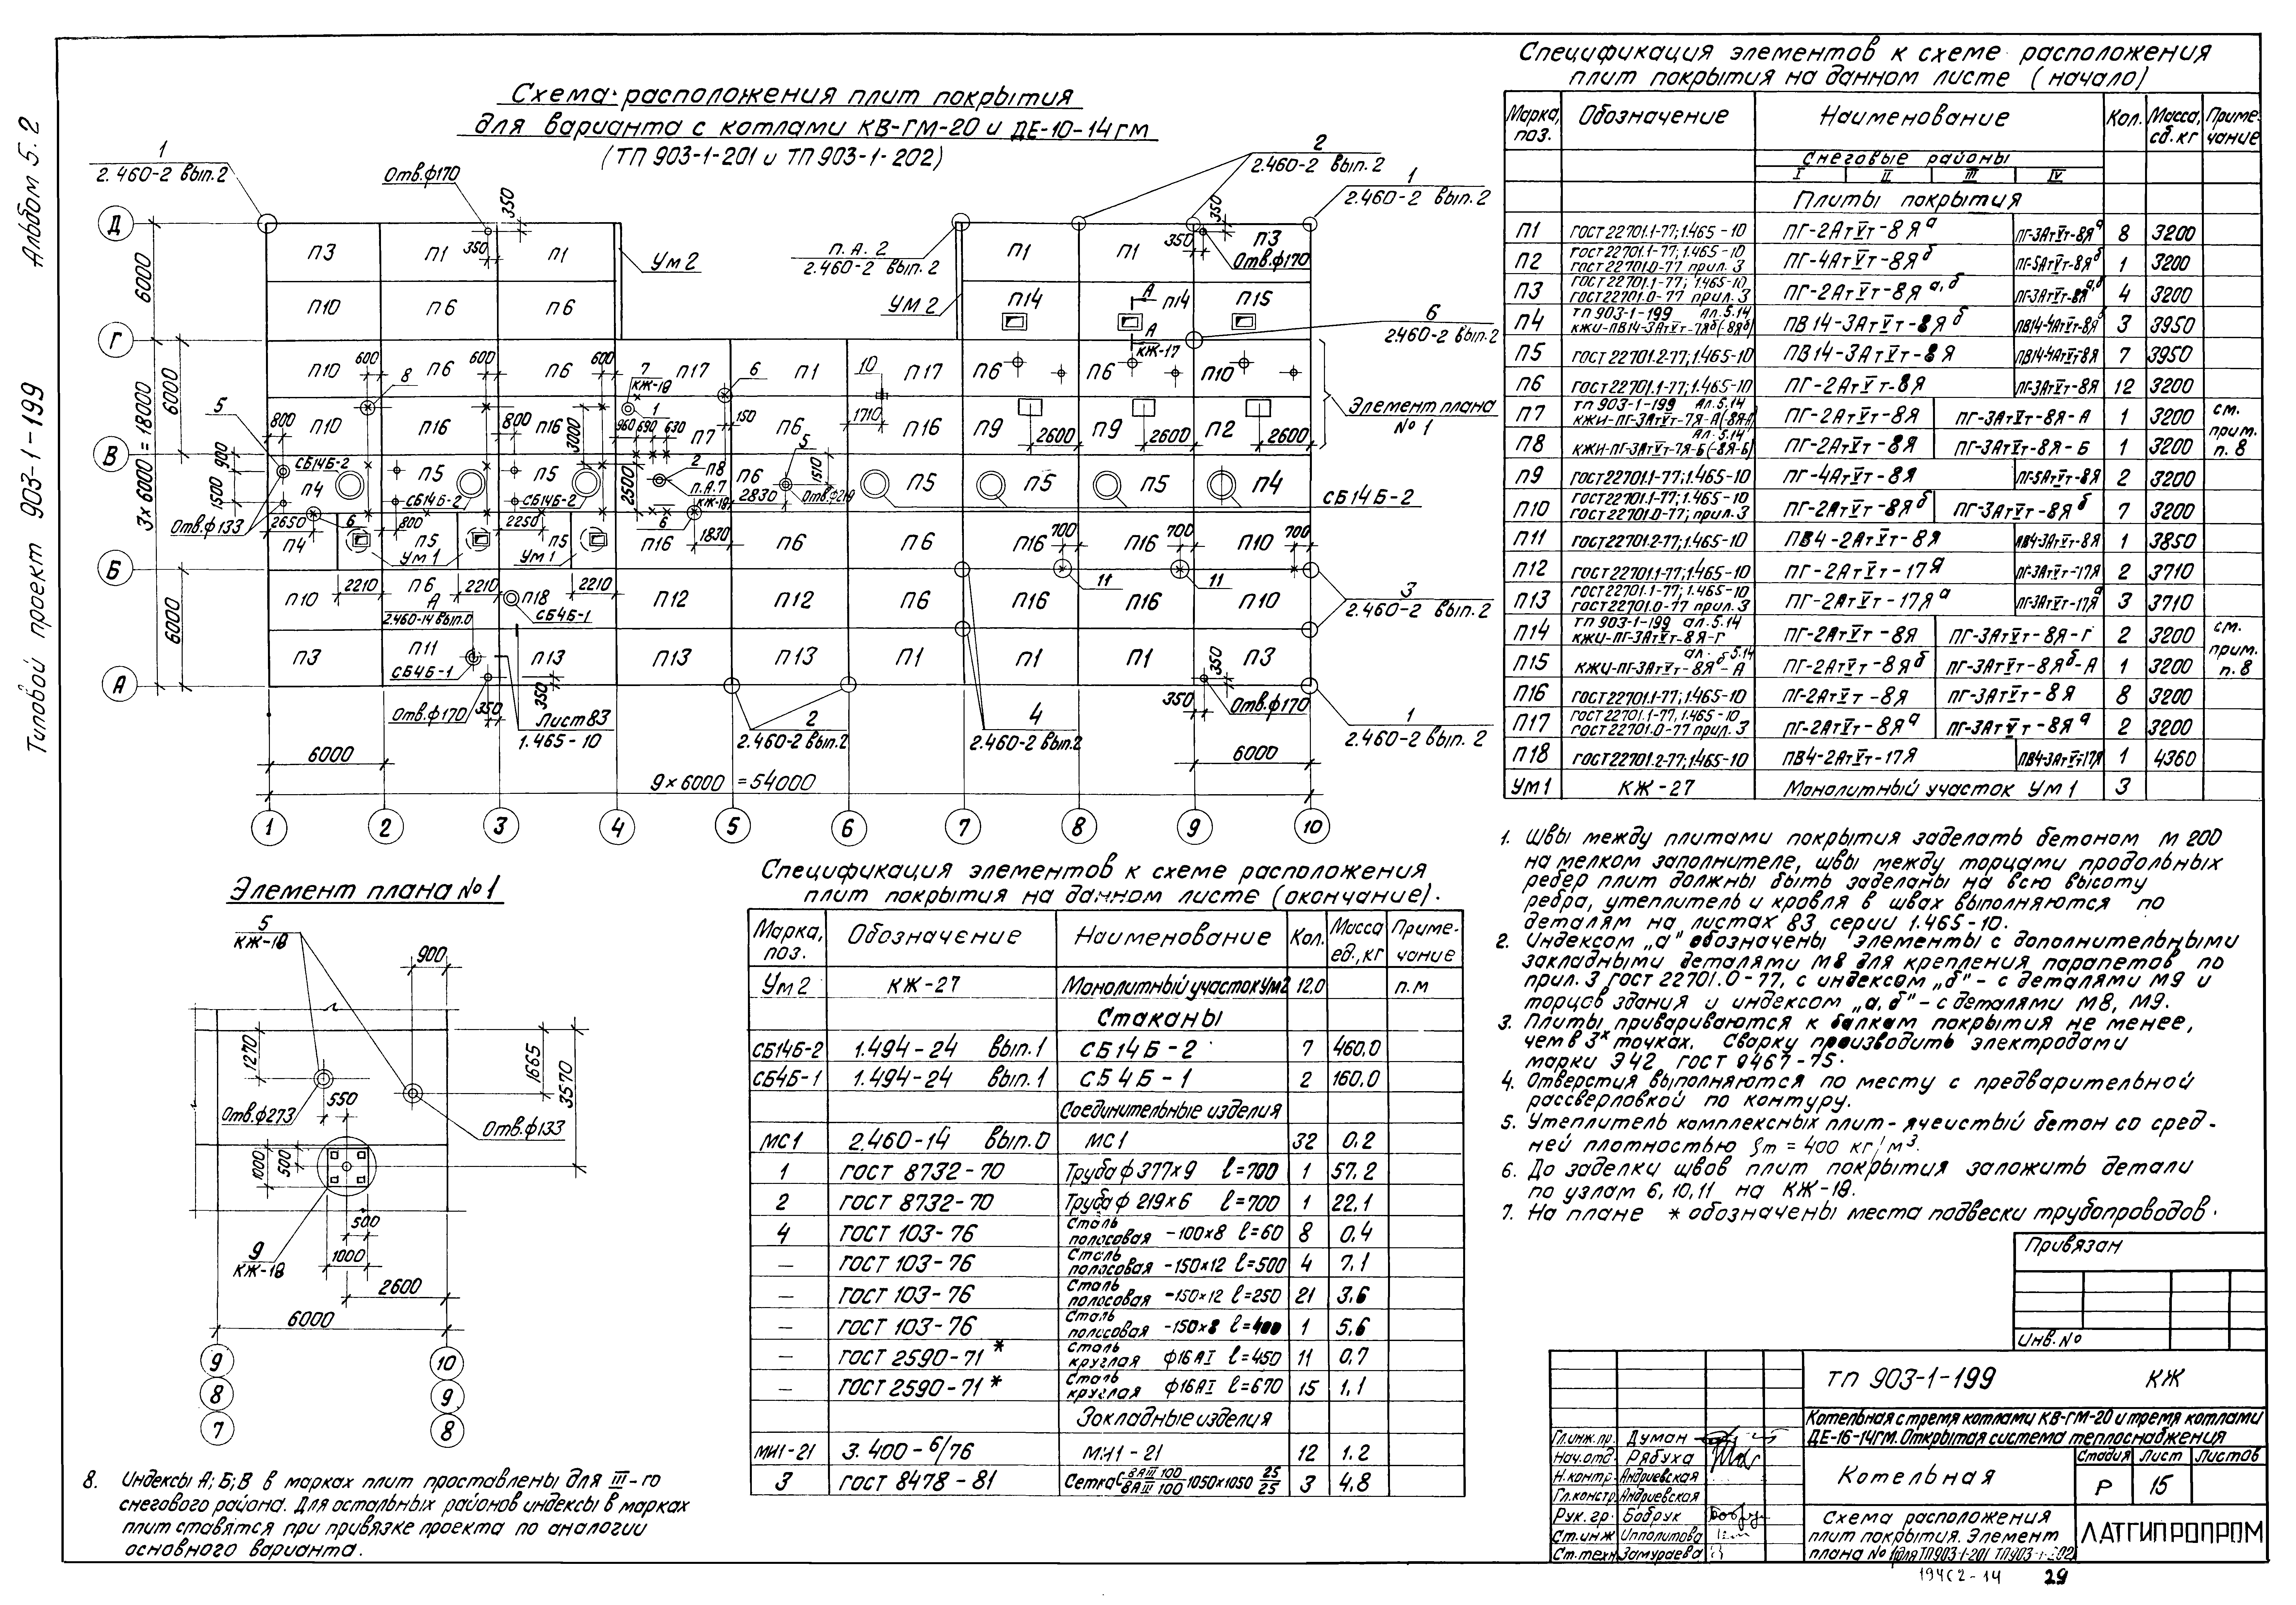 Альбом 5.2
Типовой проект 903-1-199
Схема расположения плит покрытия
для варианта с котлами КВ-ГМ-20 и ДЕ-10-14ГМ
(ТП 903-1-201 и ТП 903-1-202)
1
2.460-2 вып.2
Отв.ф170
350
2
2.460-2 вып.2
1
2.460-2 вып.2
Д
П3 П1 П1
350
Ум2
п.А.2
2.460-2 вып.2
П1 П1 П3
350
350
Отв.ф170
6000
П10 П6 П6
УМ2
П14 П14 П15
А
А
КЖ-17
6
2.460-2 вып.2
Г
П10 П6 П6 П17 П1 П17 П6 П6 П10
600 600 600
7
КЖ-18
6
10
8
5
1
150
1710
Элемент плана
№1
3×6000=18000
6000
800
П10 П16 П16 П7 П6 П16 П9 П9 П2
800
3000
960 690 630
2600 2600 2600
В
900
1500
СБ14Б-2
П4 П5 П5 П8 П6 П5 П5 П5 П4
СБ14Б-2
СБ14Б-2
2500
2
п.А.7
КЖ-18
5
1510
2830
Отв.ф219
СБ14Б-2
Отв.ф133
2650
6
800
2250
6
1830
700 700 700
П4 П5 П5 П16 П6 П6 П16 П16 П10
Ум1 Ум1
Б
11 11
2210 2210 2210
П10 П6 П18 П12 П12 П6 П16 П16 П10
А
2.460-14 вып.0
СБ4Б-1
3
2.460-2 вып.2
6000
П3 П11 П13 П13 П13 П1 П1 П1 П3
СБ4Б-1
350
350
А
Отв.ф170
350
Лист 83
1.465-10
2
2.460-2 вып.2
4
2.460-2 вып.2
350
Отв.ф170
1
2.460-2 вып.2
6000
6000
9×6000=54000
1 2 3 4 5 6 7 8 9 10
Элемент плана №1
5
КЖ-18
900
1270
1665
3570
550
Отв.ф273
Отв.ф133
1000
500
500
1000
9
КЖ-18
2600
6000
9 10
8 9
7 8
8. Индексы А; Б; В в марках плит проставлены для III-го
снегового района. Для остальных районов индексы в марках
плит ставятся при привязке проекта по аналогии
основного варианта.
Спецификация элементов к схеме расположения
плит покрытия на данном листе (окончание).
Марка, поз. Обозначение Наименование Кол. Масса ед., кг Примечание
Ум2 КЖ-27 Монолитный участок Ум2 12,0 п.м
Стаканы
СБ14Б-2 1.494-24 вып.1 СБ14Б-2 7 460,0
СБ4Б-1 1.494-24 вып.1 СБ4Б-1 2 160,0
Соединительные изделия
МС1 2.460-14 вып.0 МС1 32 0.2
1 ГОСТ 8732-70 Труба ф377×9 ℓ=700 1 57,2
2 ГОСТ 8732-70 Труба ф219×6 ℓ=700 1 22,1
4 ГОСТ 103-76 Сталь полосовая -100×8 ℓ=60 8 0,4
— ГОСТ 103-76 Сталь полосовая -150×12 ℓ=500 4 7,1
— ГОСТ 103-76 Сталь полосовая -150×12 ℓ=250 21 3,6
— ГОСТ 103-76 Сталь полосовая -150×8 ℓ=400 1 5,6
— ГОСТ 2590-71* Сталь круглая ф16АI ℓ=450 11 0,7
— ГОСТ 2590-71* Сталь круглая ф16АI ℓ=670 15 1,1
Закладные изделия
МИ1-21 3.400-6/76 МИ1-21 12 1.2
3 ГОСТ 8478-81 Сетка С 8АIII 100/8АIII 100 1050×1050 25/25 3 4,8
Спецификация элементов к схеме расположения
плит покрытия на данном листе (начало)
Марка, поз. Обозначение Наименование Кол. Масса, сб.кг Примечание
Снеговые районы
I II III IV
Плиты покрытия
П1 ГОСТ 22701.1-77; 1.465-10 ПГ-2АтVт-8Яа ПГ-3АтVт-8Яа 8 3200
П2 ГОСТ 22701.1-77; 1.465-10 ГОСТ 22701.0-77 прил.3 ПГ-4АтVт-8Яб ПГ-5АтVт-8Яб 1 3200
П3 ГОСТ 22701.1-77; 1.465-10 ГОСТ 22701.0-77 прил.3 ПГ-2АтVт-8Яа,б ПГ-3АтVт-8Яа,б 4 3200
П4 ТП 903-1-199 Ал.5.14 КЖИ-ПВ14-3АтVт-7Яб(-8Яб) ПВ14-3АтVт-8Яб ПВ14-4АтVт-8Яб 3 3950
П5 ГОСТ 22701.2-77; 1.465-10 ПВ14-3АтVт-8Я ПВ14-4АтVт-8Я 7 3950
П6 ГОСТ 22701.1-77; 1.465-10 ПГ-2АтVт-8Я ПГ-3АтVт-8Я 12 3200
П7 ТП 903-1-199 Ал.5.14 КЖИ-ПГ-3АтVт-7Я-А(-8Я-А) ПГ-2АтVт-8Я ПГ-3АтVт-8Я-А 1 3200 см. прим. п.8
П8 Ал.5.14 КЖИ-ПГ-3АтVт-7Я-Б(-8Я-Б) ПГ-2АтVт-8Я ПГ-3АтVт-8Я-Б 1 3200
П9 ГОСТ 22701.1-77; 1.465-10 ПГ-4АтVт-8Я ПГ-5АтVт-8Я 2 3200
П10 ГОСТ 22701.1-77; 1.465-10 ГОСТ 22701.0-77; прил.3 ПГ-2АтVт-8Яб ПГ-3АтVт-8Яб 7 3200
П11 ГОСТ 22701.2-77; 1.465-10 ПВ4-2АтVт-8Я ПВ4-3АтVт-8Я 1 3850
П12 ГОСТ 22701.1-77; 1.465-10 ПГ-2АтVт-17Я ПГ-3АтVт-17Я 2 3710
П13 ГОСТ 22701.1-77; 1.465-10 ГОСТ 22701.0-77 прил.3 ПГ-2АтVт-17Яа ПГ-3АтVт-17Яа 3 3710
П14 ТП 903-1-199 ал.5.14 КЖИ-ПГ-3АтVт-8Я-Г ПГ-2АтVт-8Я ПГ-3АтVт-8Я-Г 2 3200 см. прим. п.8
П15 ал.5.14 КЖИ-ПГ-3АтVт-8Яб-А ПГ-2АтVт-8Яб ПГ-3АтVт-8Яб-А 1 3200
П16 ГОСТ 22701.1-77; 1.465-10 ПГ-2АтVт-8Я ПГ-3АтVт-8Я 8 3200
П17 ГОСТ 22701.1-77, 1.465-10 ГОСТ 22701.0-77 прил.3 ПГ-2АтVт-8Яа ПГ-3АтVт-8Яа 2 3200
П18 ГОСТ 22701.2-77; 1.465-10 ПВ4-2АтVт-17Я ПВ4-3АтVт-17Я 1 4360
Ум1 КЖ-27 Монолитный участок Ум1 3
1. Швы между плитами покрытия заделать бетоном М 200
на мелком заполнителе, швы между торцами продольных
ребер плит должны быть заделаны на всю высоту
ребра, утеплитель и кровля в швах выполняются по
деталям на листах 83 серии 1.465-10.
2. Индексом „а" обозначены элементы с дополнительными
закладными деталями М8 для крепления парапетов по
прил.3 ГОСТ 22701.0-77, с индексом „б"- с деталями М9 и
торцов здания и индексом „а,б"- с деталями М8, М9.
3. Плиты привариваются к балкам покрытия не менее,
чем в 3х точках. Сварку производить электродами
марки Э42 ГОСТ 9467-75.
4. Отверстия выполняются по месту с предварительной
рассверловкой по контуру.
5. Утеплитель комплексных плит-ячеистый бетон со сред-
ней плотностью ρm=400 кг/м³.
6. До заделки швов плит покрытия заложить детали
по узлам 6, 10, 11 на КЖ-18.
7. На плане * обозначены места подвески трубопроводов.
Привязан
Инв.№
ТП 903-1-199 КЖ
Котельная с тремя котлами КВ-ГМ-20 и тремя котлами
ДЕ-16-14ГМ. Открытая система теплоснабжения
Гл.инж.пр. Думан
Нач.отд. Рябуха
Н.контр. Андриевская
Гл.констр. Андриевская
Рук.гр. Бобрук
Ст.инж Ипполитова
Ст.техн Замураева
Котельная
Стадия Лист Листов
Р 15
Схема расположения
плит покрытия. Элемент
плана №1 (для ТП903-1-201 ТП903-1-202)
ЛАТГИПРОПРОМ
29